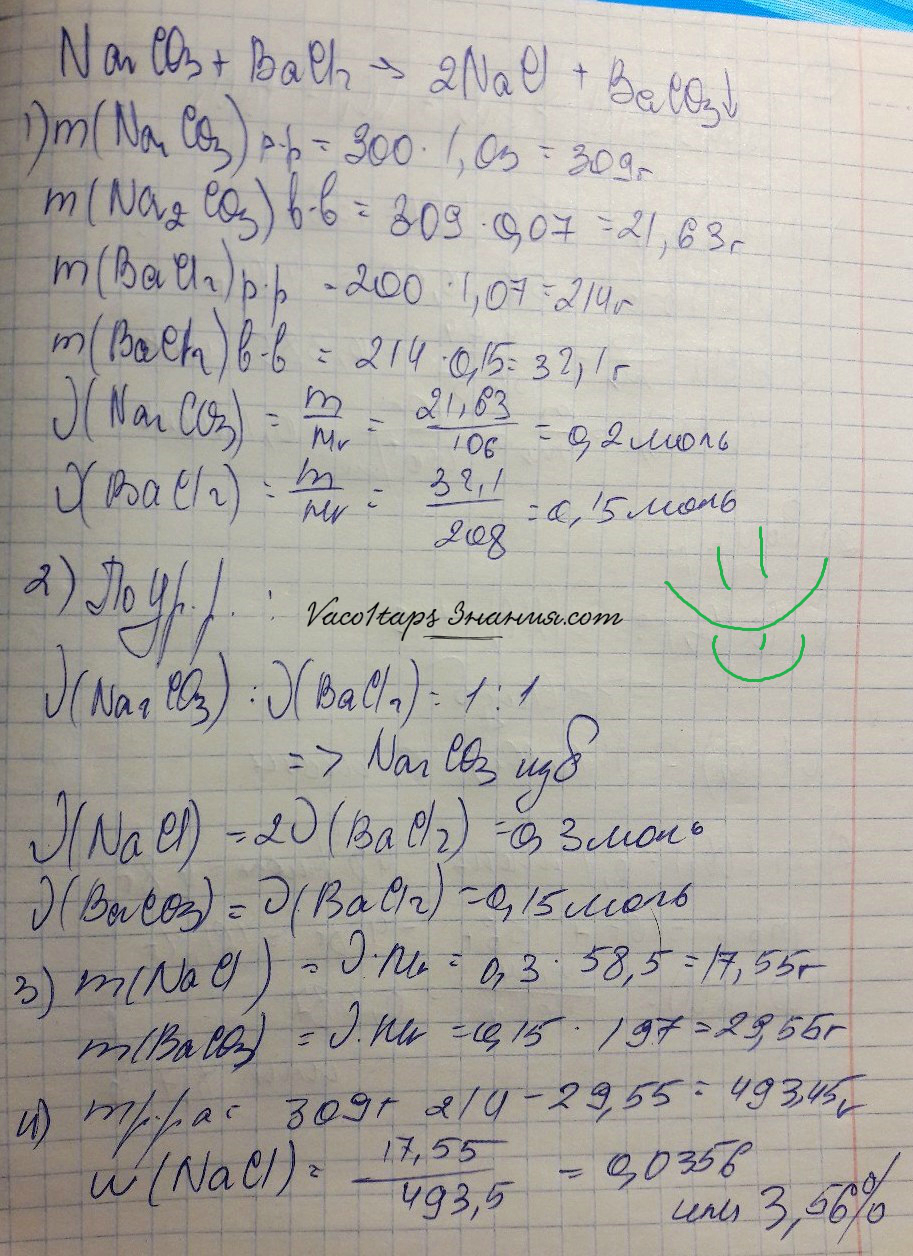 Na₂CO₃ + BaCl₂ → 2NaCl + BaCO₃↓
1) m(Na₂CO₃) р-р = 300 · 1,03 = 309г
m(Na₂CO₃) в-в = 309 · 0,07 = 21,63г
m(BaCl₂) р-р = 200 · 1,07 = 214г
m(BaCl₂) в-в = 214 · 0,15 = 32,1г
ν(Na₂CO₃) = m/Mr = 21,63/106 = 0,2 моль
ν(BaCl₂) = m/Mr = 32,1/208 = 0,15 моль
2) По ур.р. :
Vaco1taps Знания.com
ν(Na₂CO₃) : ν(BaCl₂) = 1 : 1
=> Na₂CO₃ изб
ν(NaCl) = 2ν(BaCl₂) = 0,3 моль
ν(BaCO₃) = ν(BaCl₂) = 0,15 моль
3) m(NaCl) = ν·Mr = 0,3 · 58,5 = 17,55г
m(BaCO₃) = ν·Mr = 0,15 · 197 = 29,55г
4) mр-ра = 309 + 214 - 29,55 = 493,45г
w(NaCl) = 17,55/493,5 = 0,0356
или 3,56%